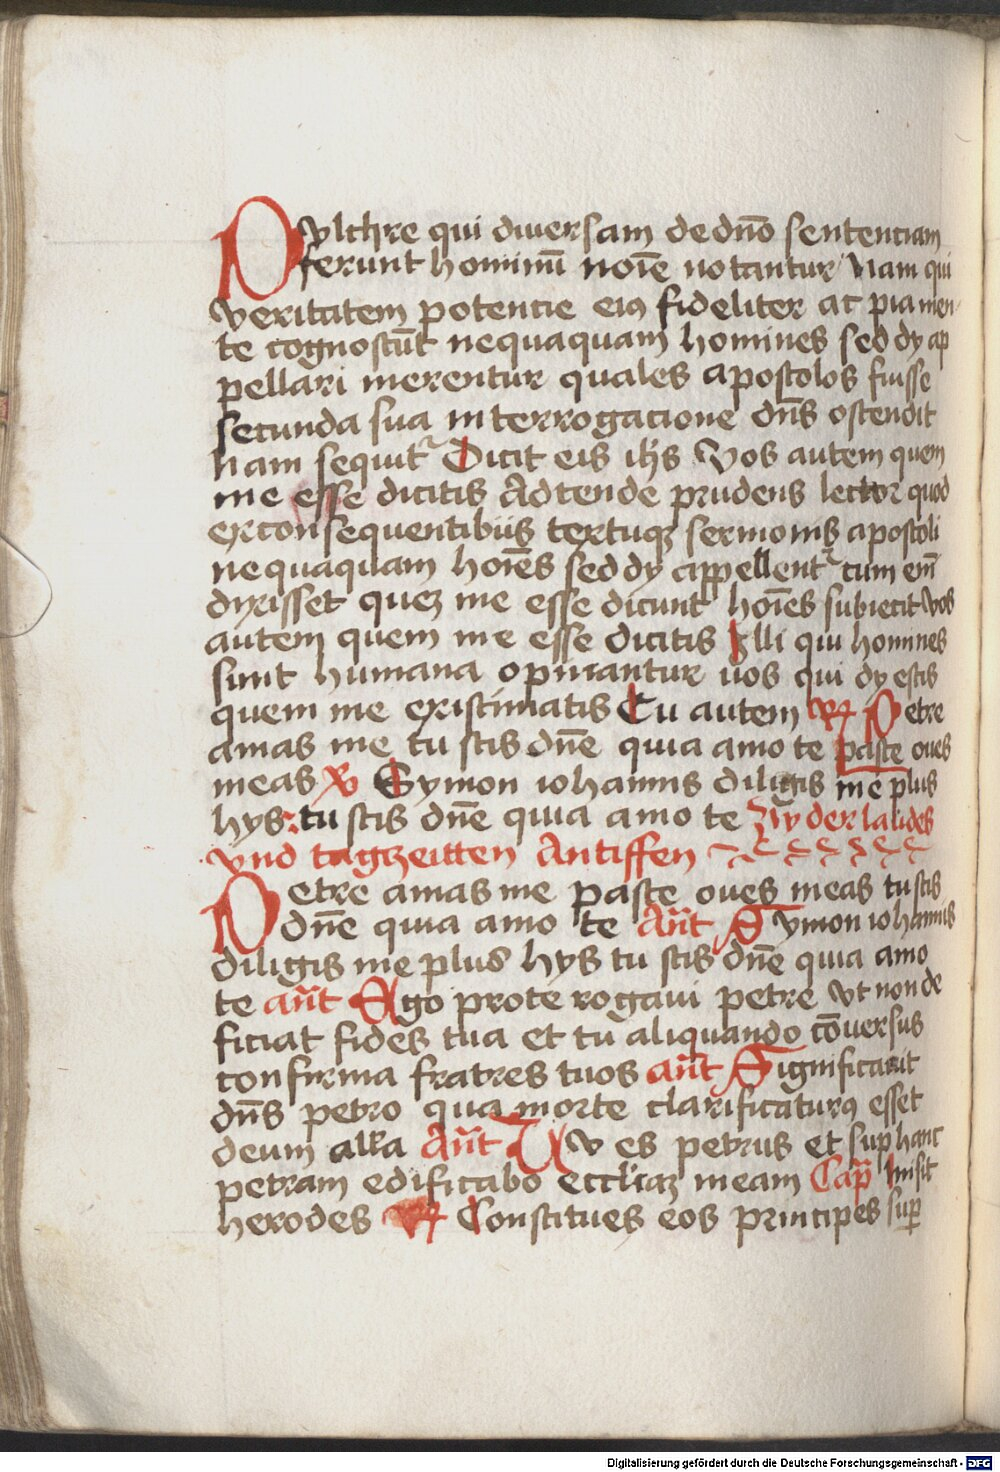 Pvlchre qui diuersam de dno̅ sentenciam
ferunt hominu̅ noi̅e notantur Nam qui
veritatem potencie eiꝯ fideliter ac pia men-
te cognoscu̅t nequaquam homines sed dy ap
pellari merentur quales apostolos fuisse
secunda sua interrogacione dn̅s ostendit
Nam sequit᷑ Dicit eis ih̅s Vos autem quem
me esse dicitis Adtende prudens lector quod
ex consequentibus textuqꝫ sermonis apostoli
nequaquam hoi̅es sed dy appellent᷑ cum em̅
dyxisset queꝫ me esse dicunt hoi̅es subiecit vos
autem quem me esse dicitis Illi qui homines
sunt humana opinantur uos qui dy estis
quem me existimatis Tu autem ℟ Petre
amas me tu scis dn̅e quia amo te pasce oues
meas ℣ Symon iohannis diligis me plus
hys tu scis dn̅e quia amo te Zu der laudes
vnd tagzeitten Antiffen
Petre amas me pasce oues meas tu scis
dn̅e quia amo te an̅t Symon iohannis
diligis me plus hys tu scis dn̅e quia amo
te an̅t Ego pro te rogaui petre vt non de
ficiat fides tua et tu aliquando co̅uersus
confirma fratres tuos an̅t Significauit
dn̅s petro qua morte clarificaturꝯ esset
deum alla An̅t Tv es petrus et sup hanc
petram edificabo eccl̅iaꝫ meam Cap̅ Misit
herodes ℟ Constitues eos principes sup̅
Digitalisierung gefördert durch die Deutsche Forschungsgemeinschaft - DFG